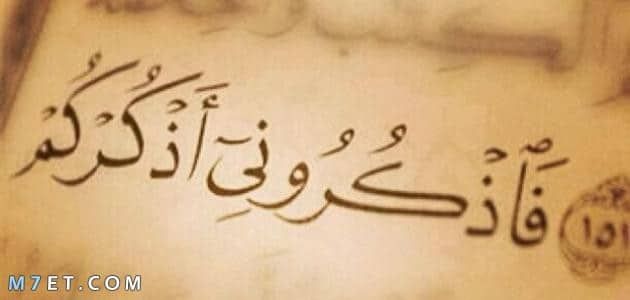 ١٥١ فَٱذۡكُرُونِيٓ أَذۡكُرۡكُمۡ
M7ET.COM